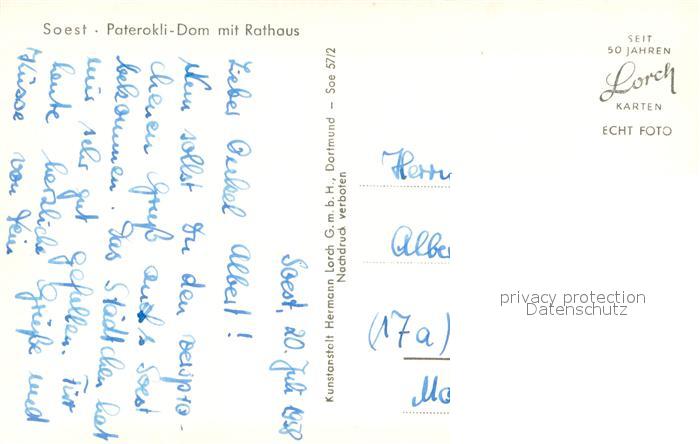 Soest · Paterokli-Dom mit Rathaus
Soest, 20. Juli 1958
Lieber Onkel Albert!
Nun sollst Du den verspro-
chenen Gruß aus Soest
bekommen. Das Städtchen hat
mir sehr gut gefallen. Für
heute herzliche Grüße und
Küsse von Dein
Kunstanstalt Hermann Lorch G.m.b.H., Dortmund – Soe 57/2
Nachdruck verboten
SEIT
50 JAHREN
Lorch
KARTEN
ECHT FOTO
Herrn
Albe
(17a)
Ma
privacy protection
Datenschutz